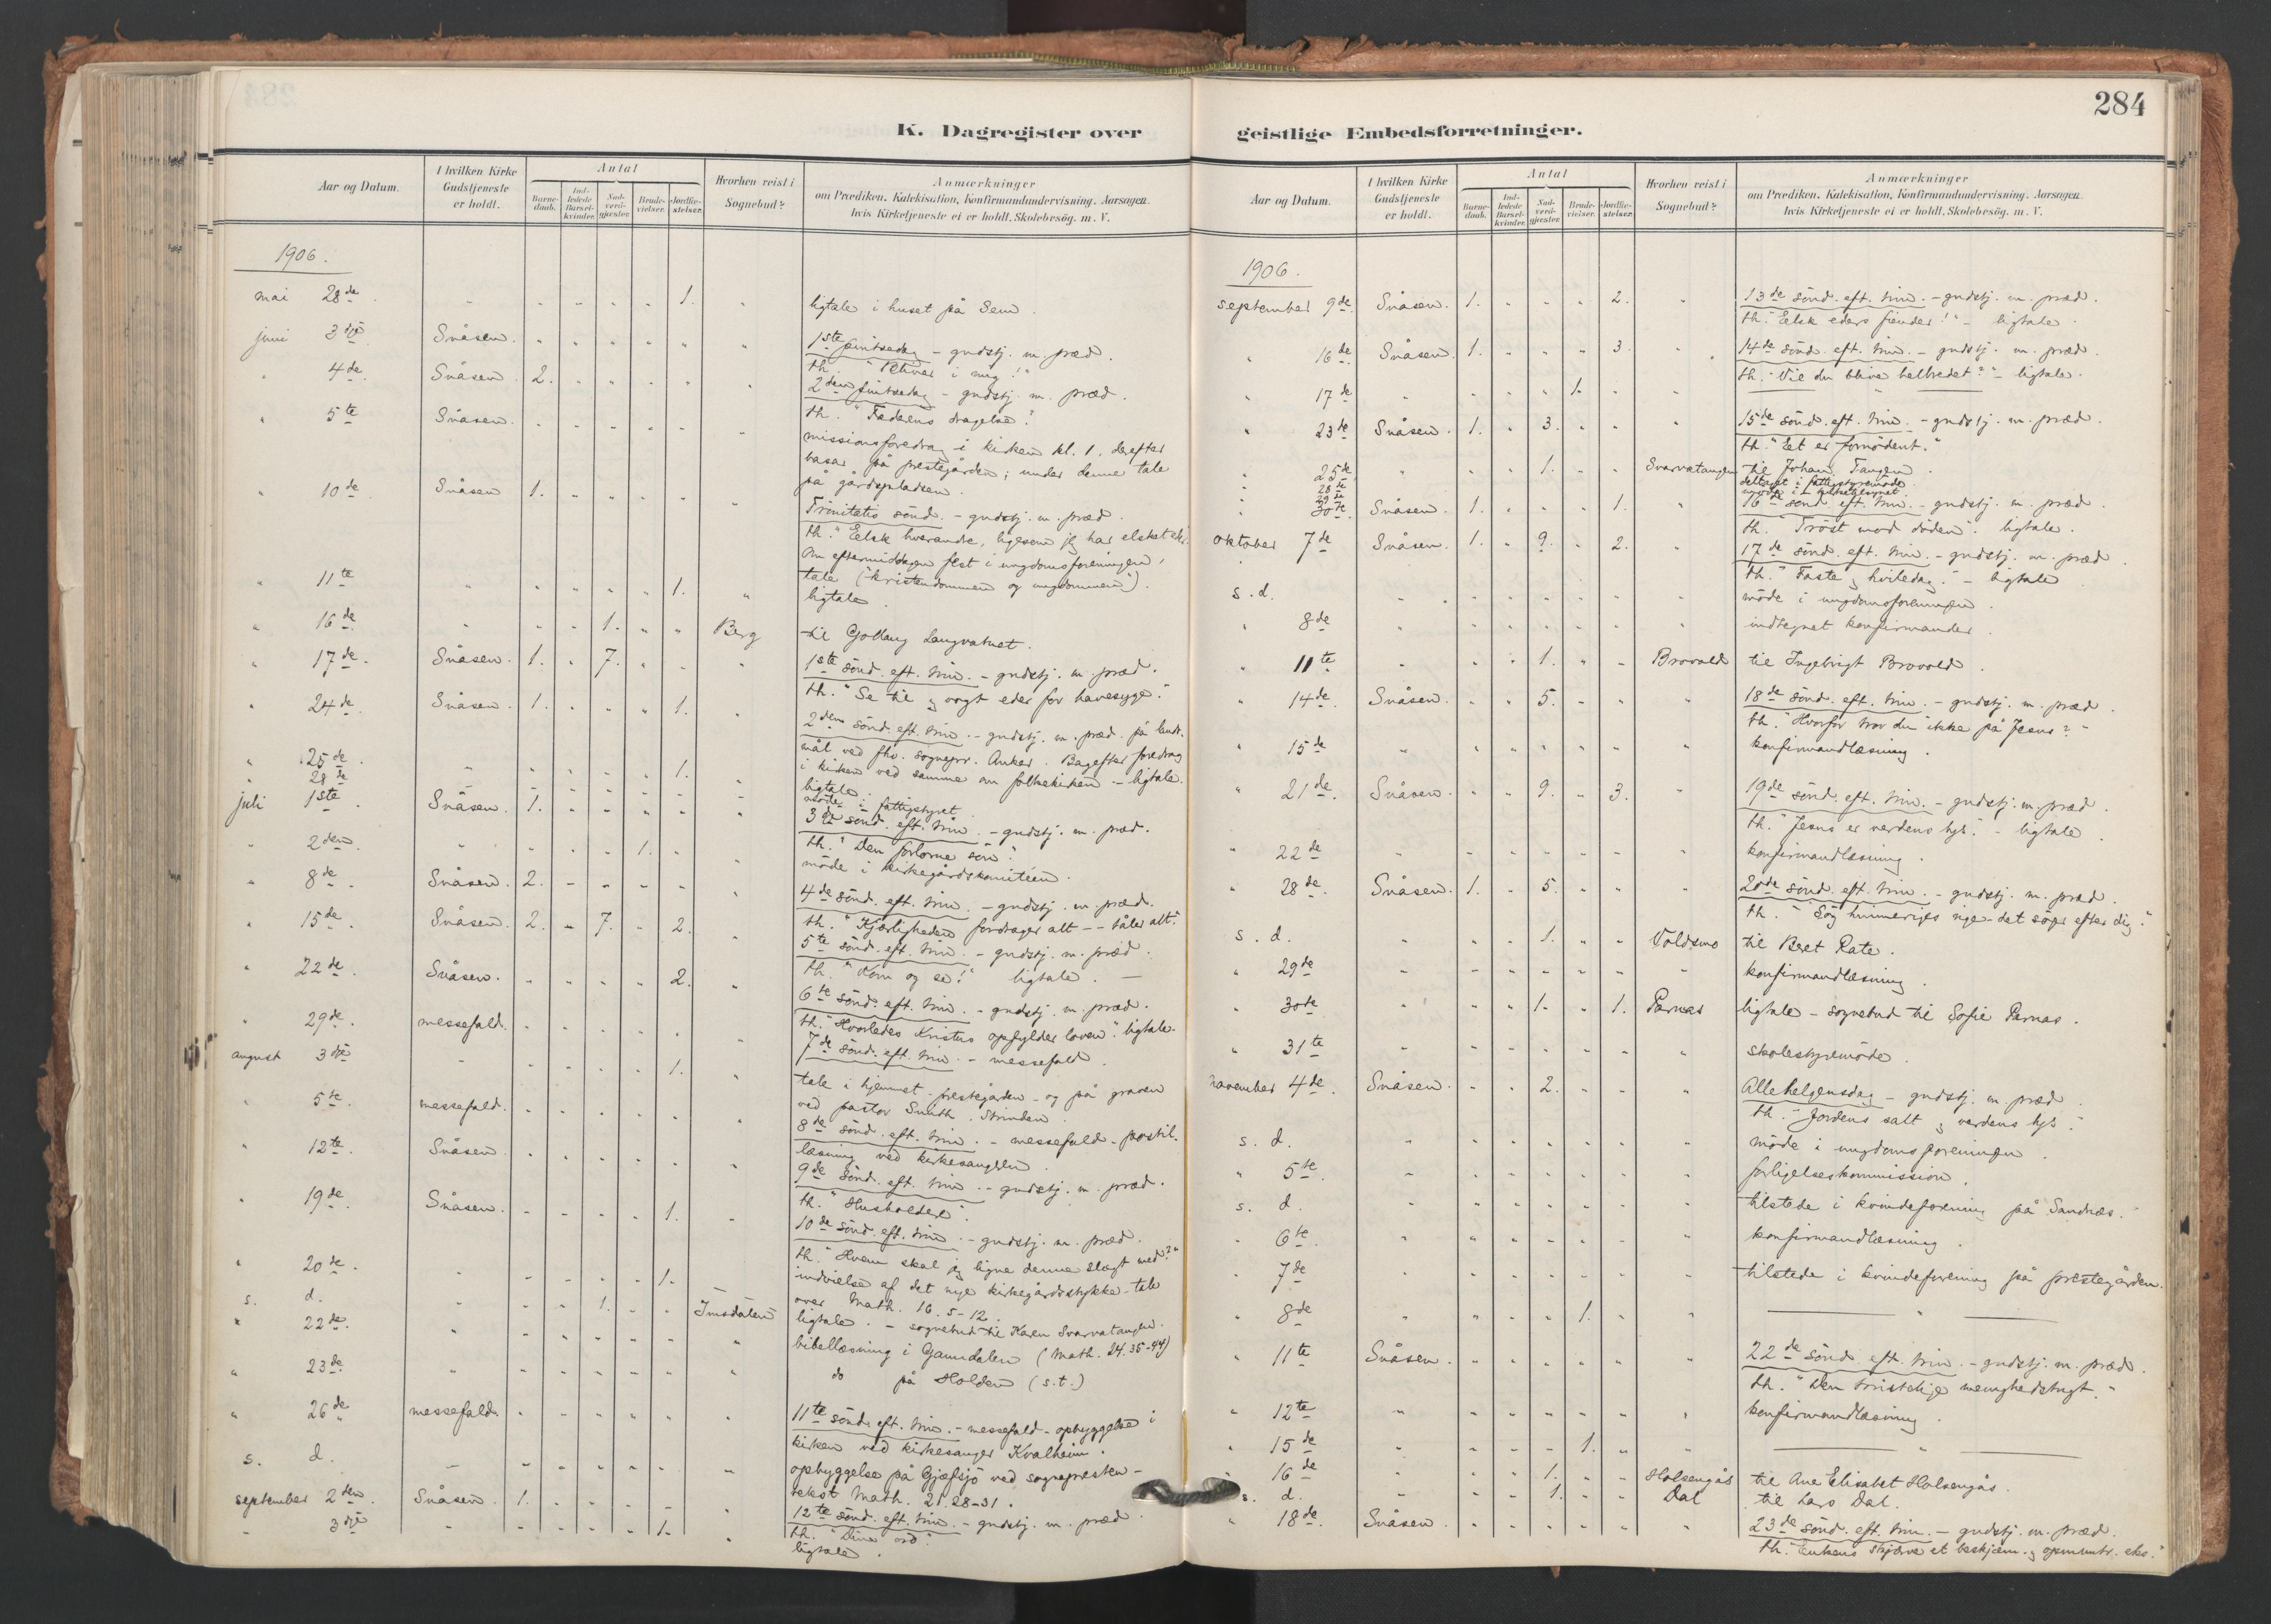 284
K. Dagregister over geistlige Embedsforretninger.
Aar og Datum. I hvilken Kirke Gudstjeneste er holdt. Antal Barnedaab. Indledede Barselkvinder. Nadverdgjæster. Brudevielser. Jordfæstelser. Hvorhen reist i Sognebud? Anmærkninger om Prædiken, Katekisation, Konfirmandundervisning. Aarsagen, hvis Kirketjeneste ei er holdt. Skolebesøg. m. V.
1906.
mai 28de. 1. ligtale i huset på Sem.
juni 3die Snåsen. 1ste pintsedag – gudstj. m. præd.
th. " i mig!"
" 4de. Snåsen 2. 2den pintsedag – gudstj. m. præd.
th. "Faderens dragelse"
" 5te Snåsen. missionsforedrag i kirken kl. 1. derefter
basar på prestegården; under denne tale
på gårdspladsen.
" 10de Snåsen 1. Trinitatis sønd. – gudstj. m. præd.
th. "Elsk hverandre, ligesom jeg har elsket eder
Om eftermiddagen fest i ungdomsforeningen,
tale ("kristendommen og ungdommen").
" 11te 1. ligtale.
" 16de 1. Berg til Gollaug Langvatnet.
" 17de. Snåsen. 1. 7. 1ste sønd. eft. trin. – gudstj. m. præd.
th. "Se til og vogt eder for havesyge."
" 24de Snåsen. 1. 1. 2den sønd. eft. trin. – gudstj. m. præd. på lands-
mål ved fhv. sognepr. Anker. Bagefter foredrag
i kirken ved samme om folkekirken – ligtale.
" 25de. 1. ligtale.
" 28de møde i fattigstyret
juli 1ste Snåsen. 1. 3die sønd. eft. trin. – gudstj. m. præd.
th. "Den forlorne søn".
" 2den. 1. møde i kirkegårdskomiteen.
" 8de. Snåsen. 2. 4de sønd. eft. trin. – gudstj. m. præd.
th. "Kjærligheden fordrager alt – – tåler alt."
" 15de. Snåsen. 2. 7. 2. 5te sønd. eft. trin. – gudstj. m. præd.
th. "Kom og se!" ligtale. –
" 22de Snåsen. 2. 6te sønd. eft. trin. – gudstj. m. præd.
th. "Hvorledes Kristus opfylder loven". ligtale.
" 29de. messefald. 7de sønd. eft. trin. – messefald.
august 3die 1. tale i hjemmet – prestegården – og på graven
ved pastor Smith. Strinden.
" 5te. messefald. 8de sønd. eft. trin. – messefald – postil-
læsning ved kirkesangeren.
" 12te. Snåsen. 9de sønd. eft. trin. – gudstj. m. præd.
th. "Husholdere".
" 19de. Snåsen. 1. 10de sønd. eft. trin. – gudstj. m. præd.
th. "Hvem skal jeg ligne denne slægt med?"
" 20de. 1. indvielse af det nye kirkegårdsstykke – tale
over Math. 16. 5–12.
s. d. 1. Imsdalen ligtale. – sognebud til Karen Svarvatangen.
" 22de. bibellæsning i Gamdalen (Math. 24. 35–44)
" 23de do på Holden (s.t.)
" 26de messefald. 11te sønd. eft. trin. – messefald – opbyggelse i
kirken ved kirkesanger Kvalheim.
s. d. opbyggelse på Gjæfsjø ved sognepresten –
tekst Math. 21. 28–31.
september 2den. Snåsen. 1. 12te sønd. eft. trin. – gudstj. m. præd.
th. "Dine ord".
" 3die 1. ligtale.
Aar og Datum. I hvilken Kirke Gudstjeneste er holdt. Antal Barnedaab. Indledede Barselkvinder. Nadverdgjæster. Brudevielser. Jordfæstelser. Hvorhen reist i Sognebud? Anmærkninger om Prædiken, Katekisation, Konfirmandundervisning. Aarsagen, hvis Kirketjeneste ei er holdt. Skolebesøg. m. V.
1906.
september 9de. Snåsen. 1. 2. 13de sønd. eft. trin. – gudstj. m. præd.
th. "Elsk eders fiender!" – ligtale.
" 16de Snåsen. 1. 3. 14de sønd. eft. trin. – gudstj. m. præd.
th. "Vil du blive helbredet?" – ligtale.
" 17de 1.
" 23de Snåsen. 1. 3. 15de sønd. eft. trin. – gudstj. m. præd.
th. "Et er fornødent."
" 25de 1. Svarvatangen til Johan Tangen.
" 28de deltaget i fattigstyremøde
" 29de
" 30te. Snåsen. 1. 1. 16de sønd. eft. trin. – gudstj. m. præd.
th. "Trøst mod døden". ligtale.
oktober 7de Snåsen. 1. 9. 2. 17de sønd. eft. trin. – gudstj. m. præd.
th. "Faste og hviledag." – ligtale
s. d. møde i ungdomsforeningen.
" 8de indtegnet konfirmander.
" 11te 1. Brovold til Ingebrigt Brovold.
" 14de. Snåsen. 5. 18de sønd. eft. trin. – gudstj. m. præd.
th. "Hvorfor tror du ikke på Jesus? –
" 15de konfirmandlæsning.
" 21de. Snåsen. 9. 3. 19de sønd. eft. trin. – gudstj. m. præd.
th. "Jesus er verdens lys". – ligtale.
" 22de konfirmandlæsning.
" 28de. Snåsen. 1. 5. 20de sønd. eft. trin. – gudstj. m. præd.
th. – "Søg himmeriges rige – det søger efter dig".
s. d. 1. Voldsmo til Beret Kate.
" 29de konfirmandlæsning.
" 30te 1. 1. Parnas ligtale – sognebud til Sofie Parnas.
" 31te skolestyremøde.
november 4de. Snåsen. 2. Allehelgensdag – gudstj. m. præd.
th. – Jordens salt og verdens lys."
s. d. møde i ungdomsforeningen.
" 5te. forligelseskommission.
s. d. tilstede i kvindeforening på Sandnes.
" 6te. konfirmandlæsning.
" 7de tilstede i kvindeforening på prestegården.
" 8de 1.
" 11te Snåsen. 22de sønd. eft. trin. – gudstj. m. præd.
th. "Den kristelige menighedstugt."
" 12te konfirmandlæsning.
" 15de 1.
" 16de 1. Holsengås til Ane Elisabet Holsengås.
s. d. 1. Dal til Lars Dal.
" 18de. Snåsen. 23de sønd. eft. trin. – gudstj. m. præd.
th. "Enkens skjærv et beskjæm. og opmuntr. eks."